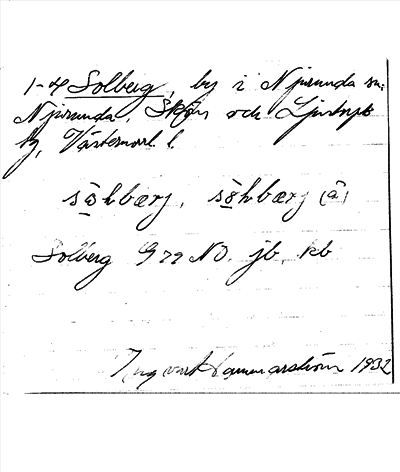 1-4 Solberg, by i Njurunda sn,
Njurunda, Sköns och Ljustorps
tg, Västernorrl. l.
sɷ̀hbærj, sɷ̀hbærj (â)
Solberg G 72 NO. jb, kb
Ingvart Hammarström 1932